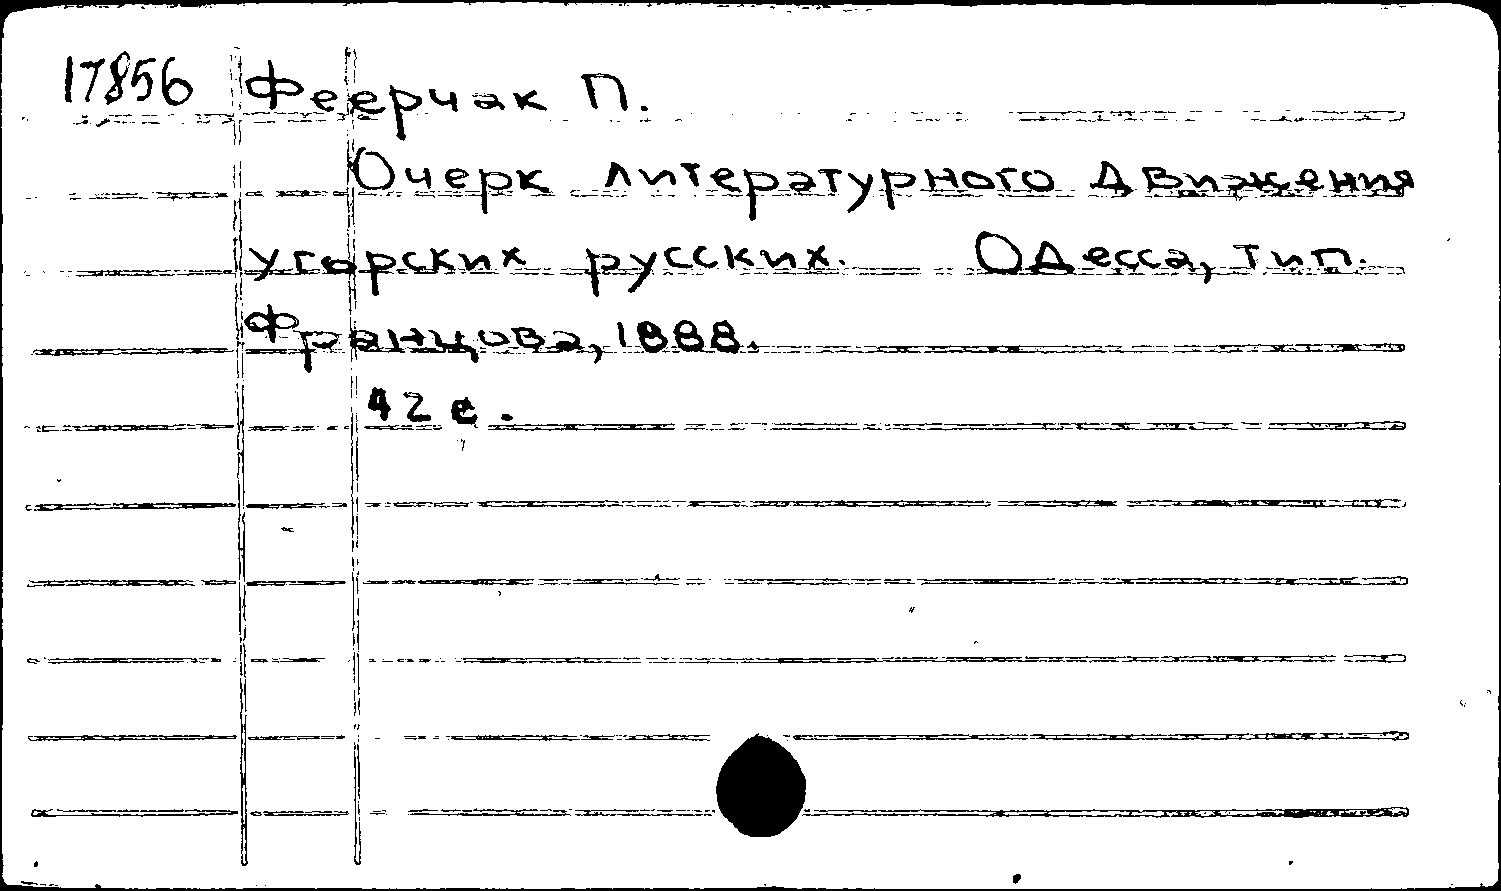 17856 Феерчак П.
Очерк литературного движения
угорских русских. Одесса, тип.
Францова, 1888.
42 с.